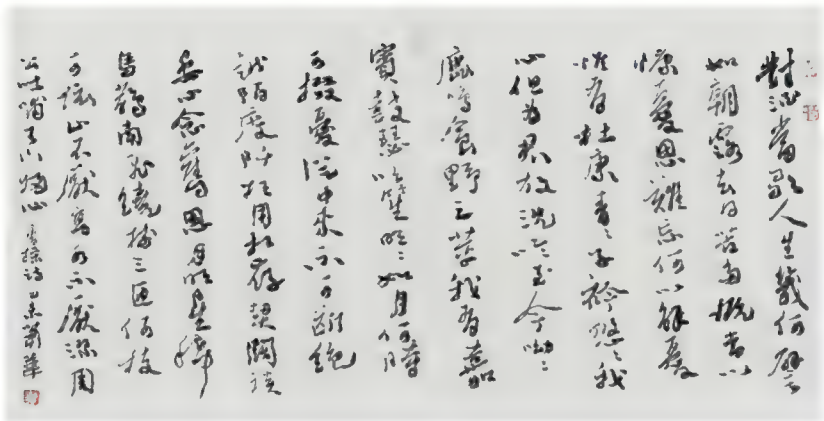 對酒當歌人生幾何譬
如朝露去日苦多慨當以
慷憂思難忘何以解憂
惟有杜康青〻子衿悠〻我
心但為君故沈吟至今呦〻
鹿鳴食野之苹我有嘉
賓鼓瑟吹笙明〻如月何時
可掇憂從中來不可斷絕
越陌度阡枉用相存契闊談
宴心念舊恩月明星稀
烏鵲南飛繞樹三匝何枝
可依山不厭高水不厭深周
公吐哺天下歸心 曹操詩